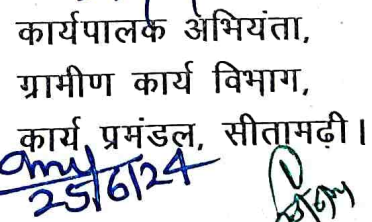 कार्यपालक अभियंता,
ग्रामीण कार्य विभाग,
कार्य प्रमंडल, सीतामढ़ी।
25/6/24